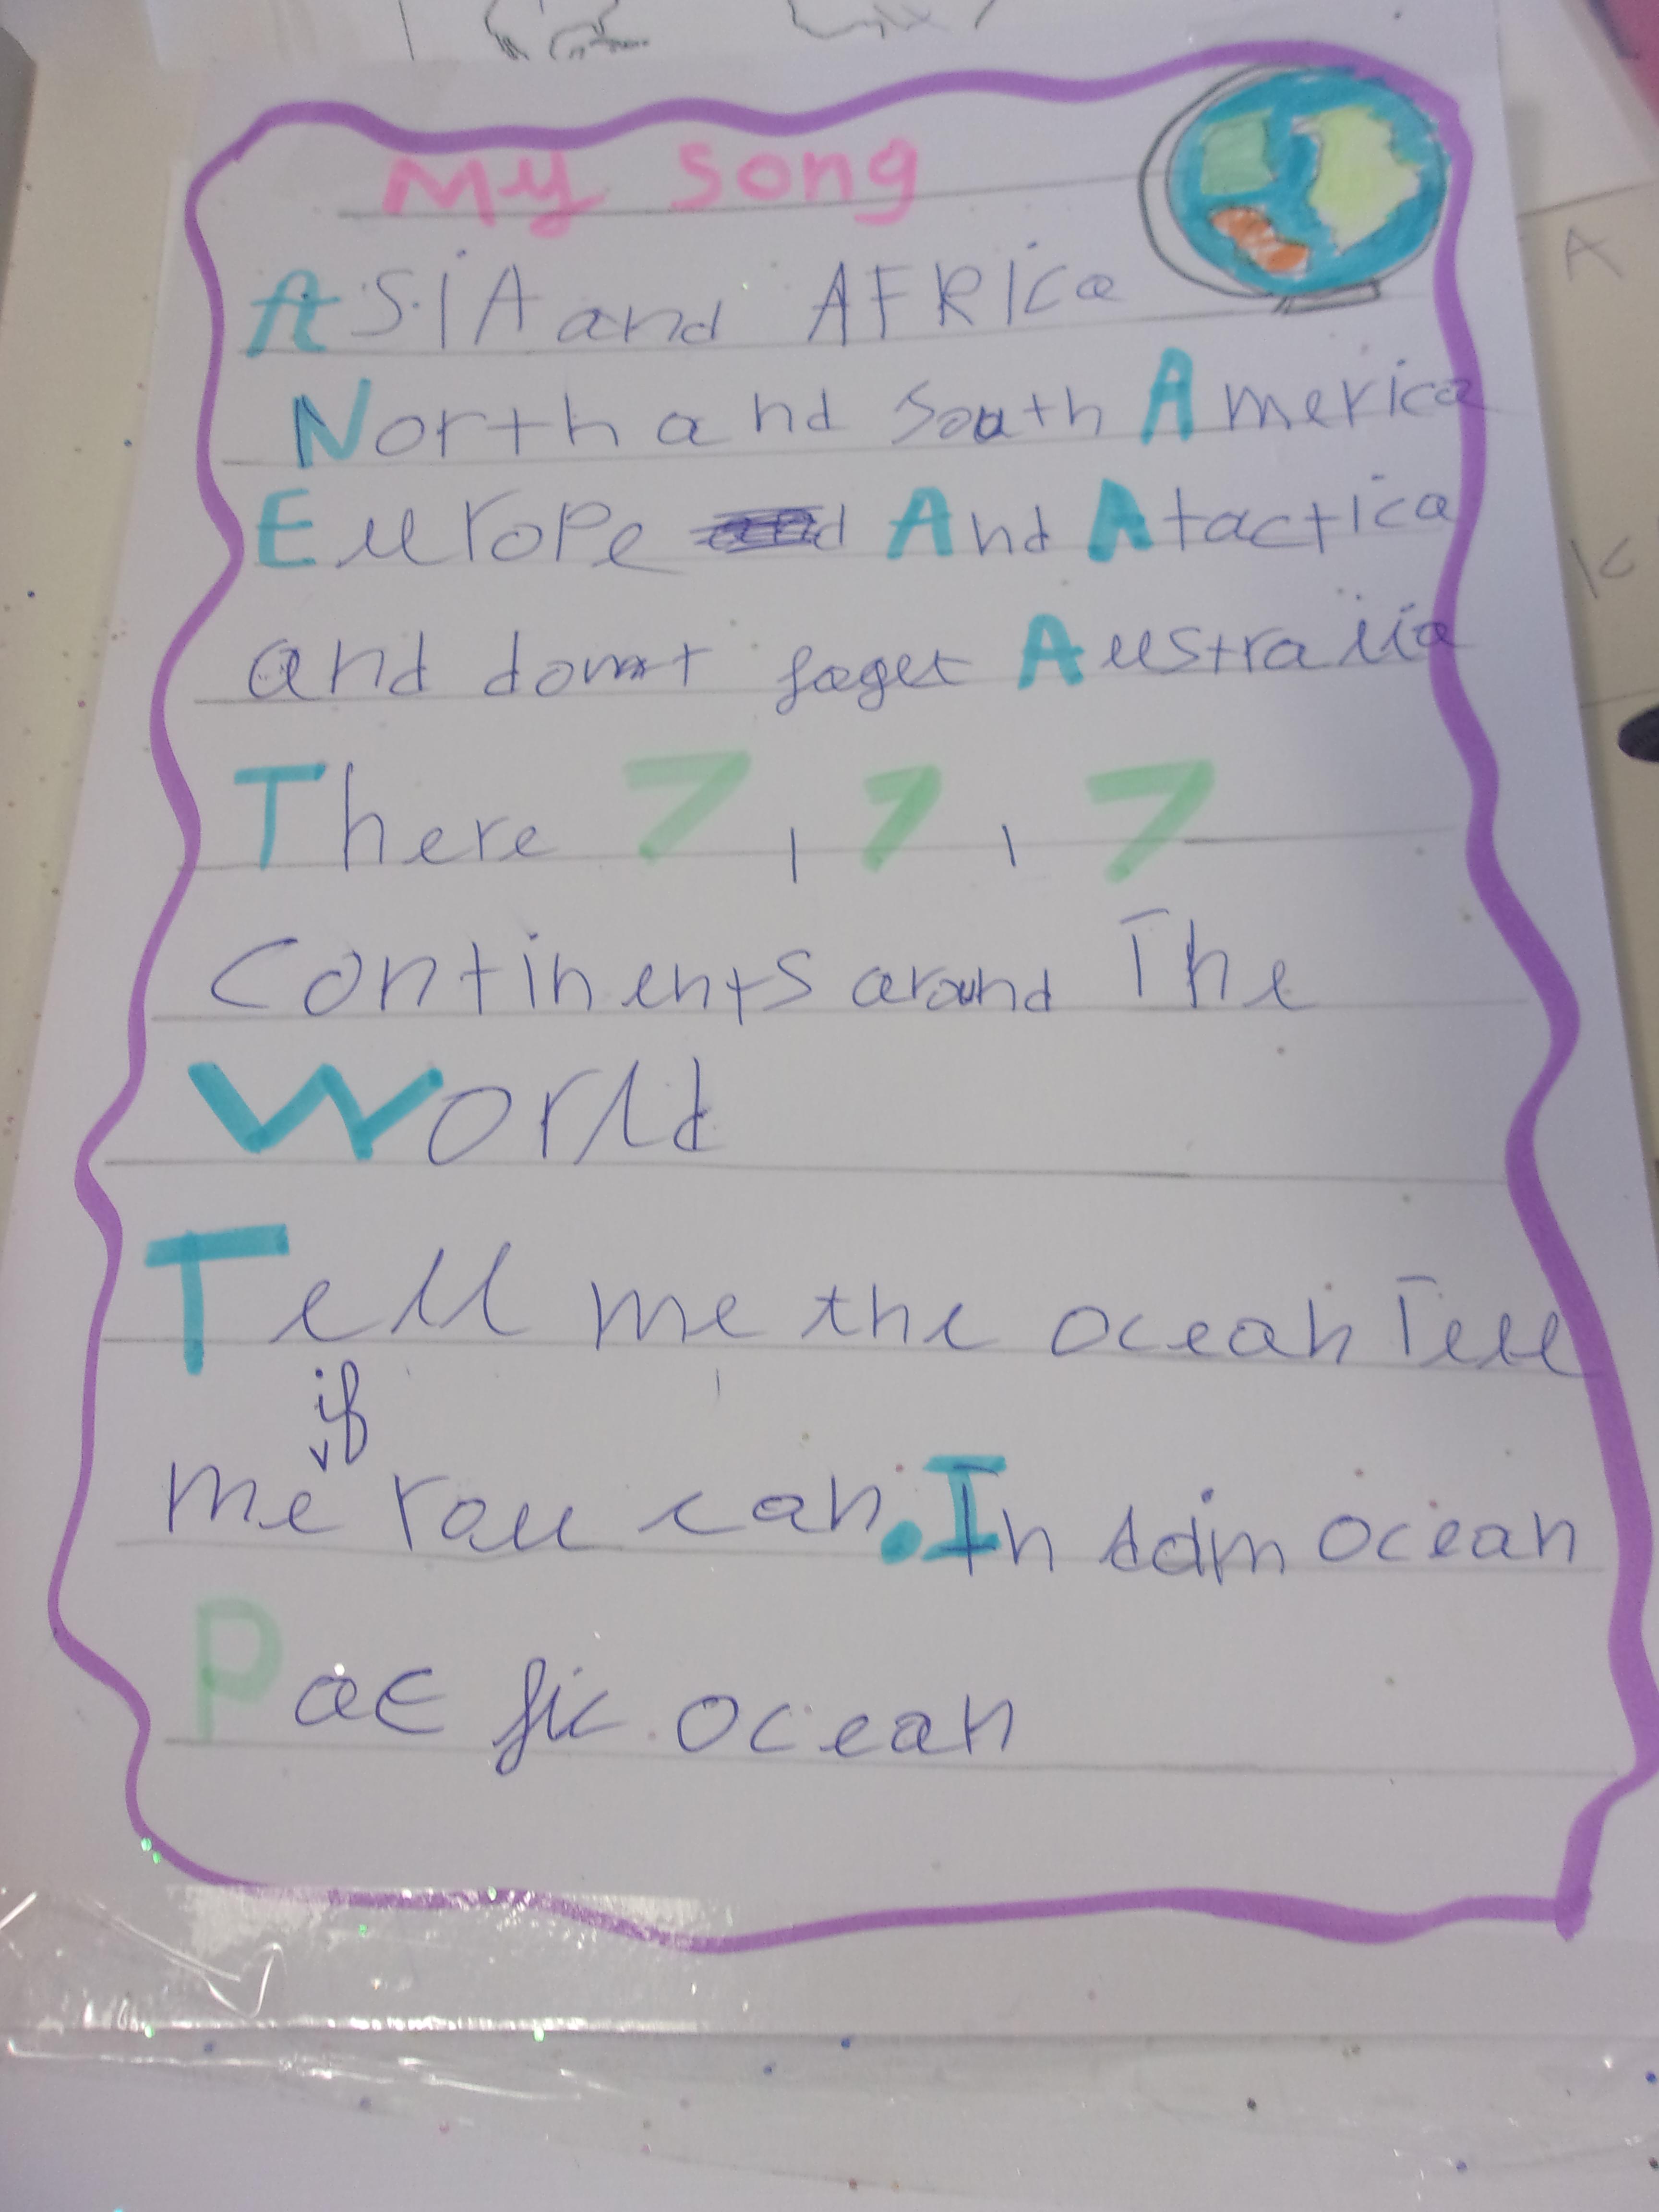 My song
ASIA and AFRICa
North and South America
Europe And Atactica
and dont foget Australia
There 7, 7, 7
Continents around The
World
Tell me the ocean Tell
if
me you can. In ocean
Pac fic ocean